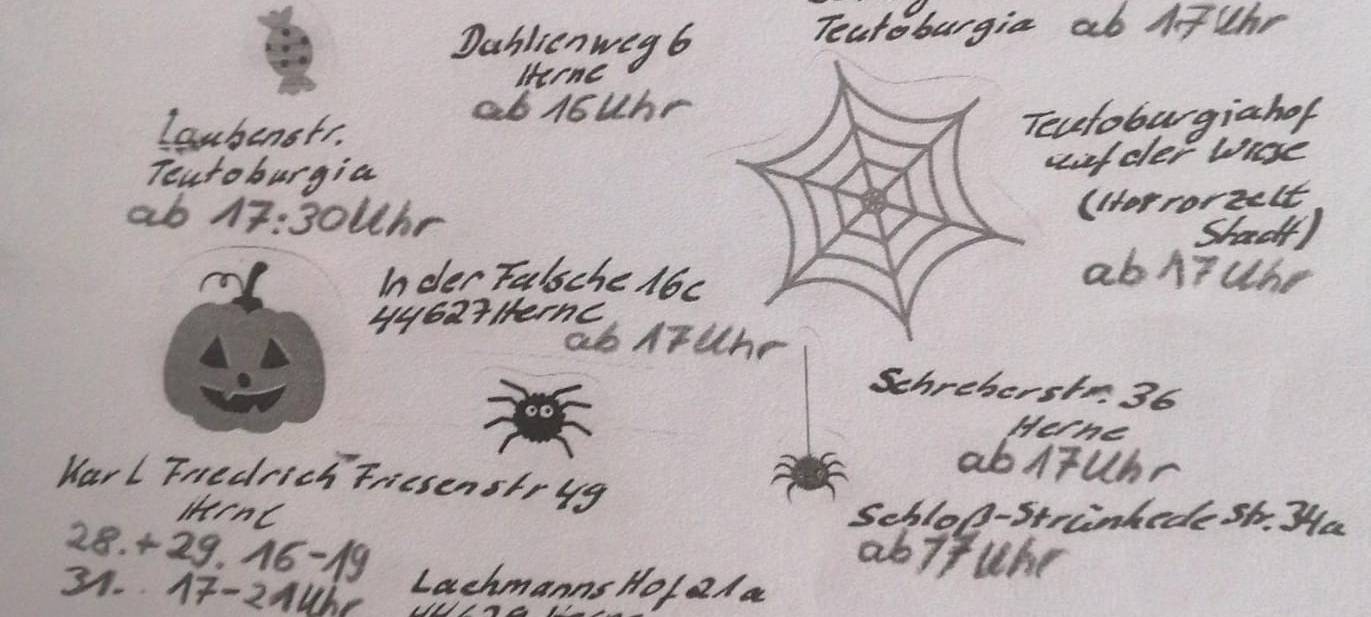 Dahlienweg 6
Herne
ab 16 Uhr
Teutoburgia ab 17 Uhr
Laubenstr.
Teutoburgia
ab 17:30 Uhr
Teutoburgiahof
auf der Wiese
(Horrorzelt
Stadt)
ab 17 Uhr
In der Falsche 16c
44627 Herne
ab 17 Uhr
Schreberstr. 36
Herne
ab 17 Uhr
Karl Friedrich Friesenstr 49
Herne
28.+29. 16-19
31. 17-21 Uhr
Schloß-Strünkede Str. 34a
ab 17 Uhr
Lachmanns Hof 21a
Herne